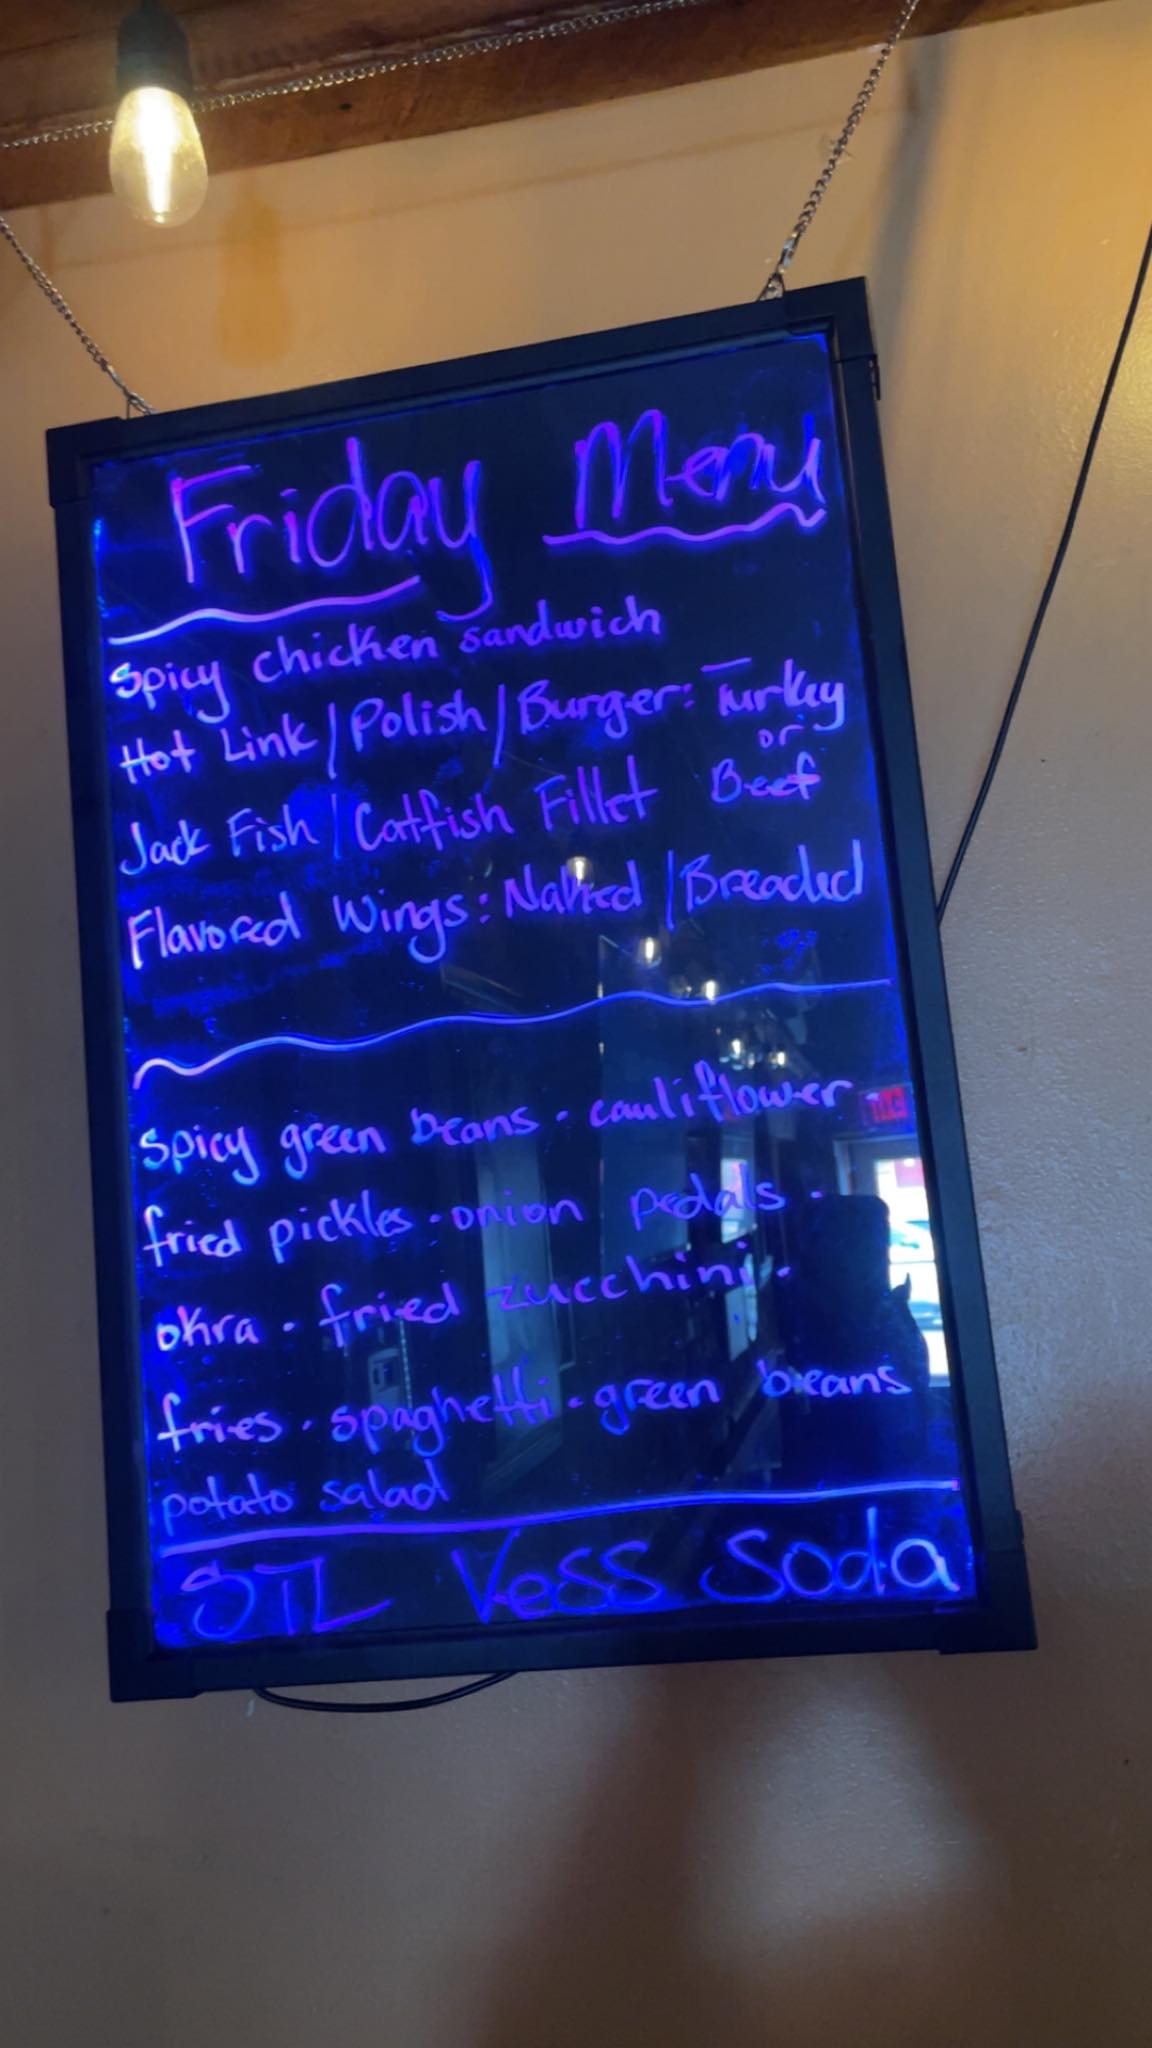 Friday Menu
Spicy chicken sandwich
Hot Link/Polish/Burger: Turkey
or
Beef
Jack Fish/Catfish Fillet
Flavored Wings: Naked/Breaded
Spicy green beans · cauliflower
fried pickles · onion pedals ·
okra · fried zucchini ·
fries · spaghetti · green beans
potato salad
STL Vess Soda